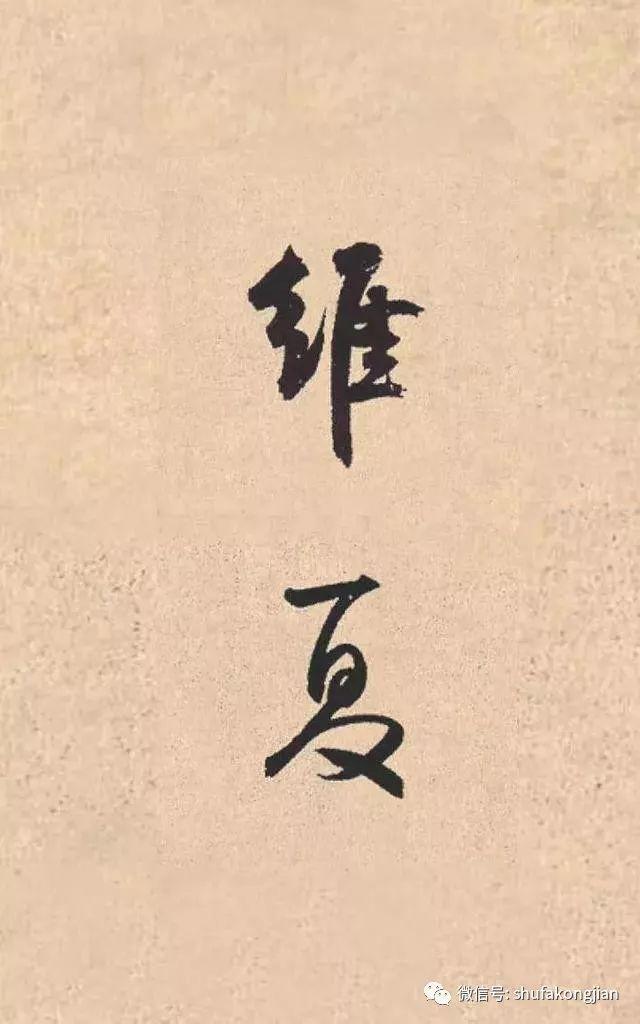 維
夏
微信号: shufakongjian